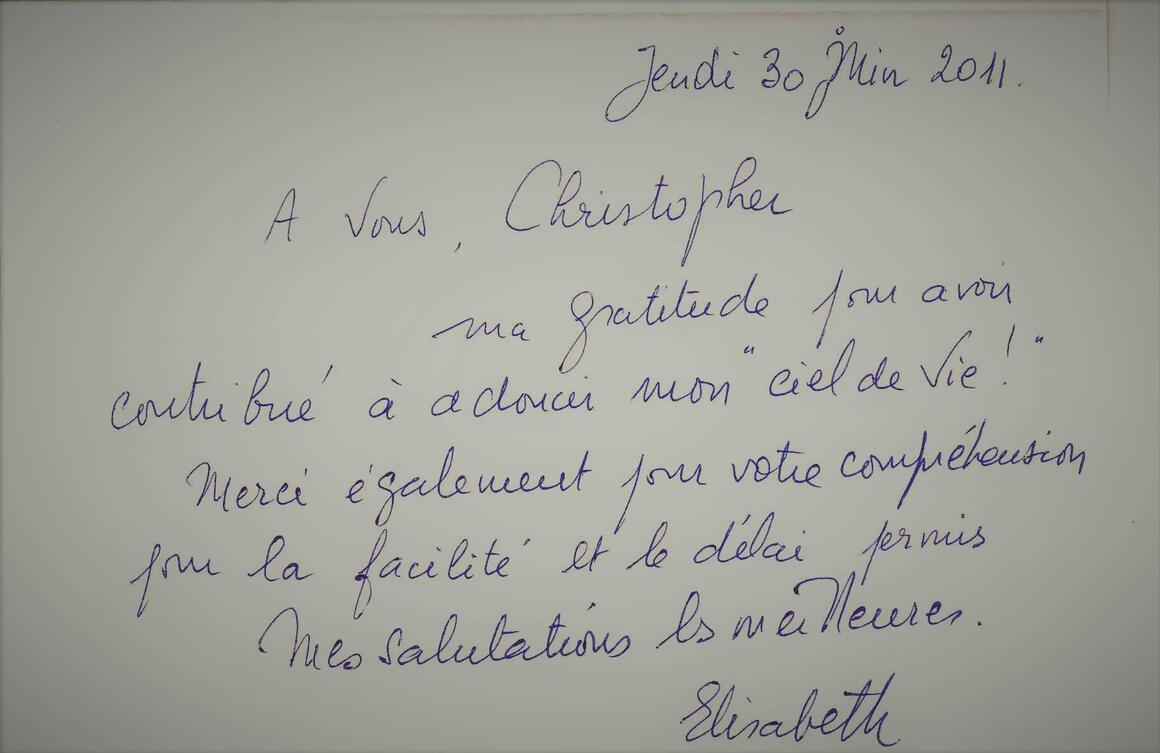 Jeudi 30 Juin 2011.
A Vous, Christopher
ma gratitude pour avoir
contribué à adoucir mon "ciel de Vie!"
Merci également pour votre compréhension
pour la facilité et le délai permis
Mes salutations les meilleures.
Elisabeth